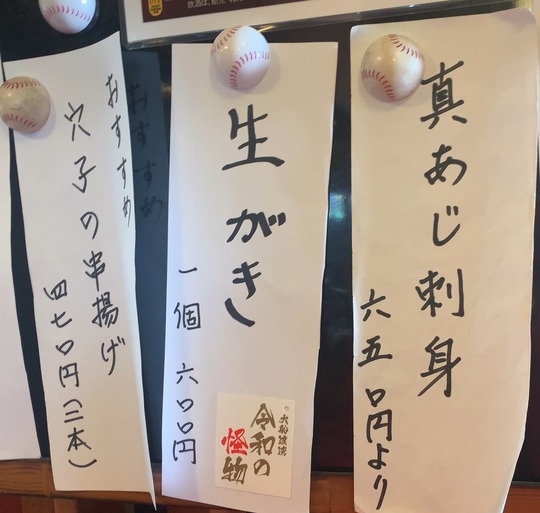 真あじ刺身
六五〇円より
生がき
一個 六〇〇円
令和の
怪物
おすすめ
穴子の串揚げ
四七〇円(二本)